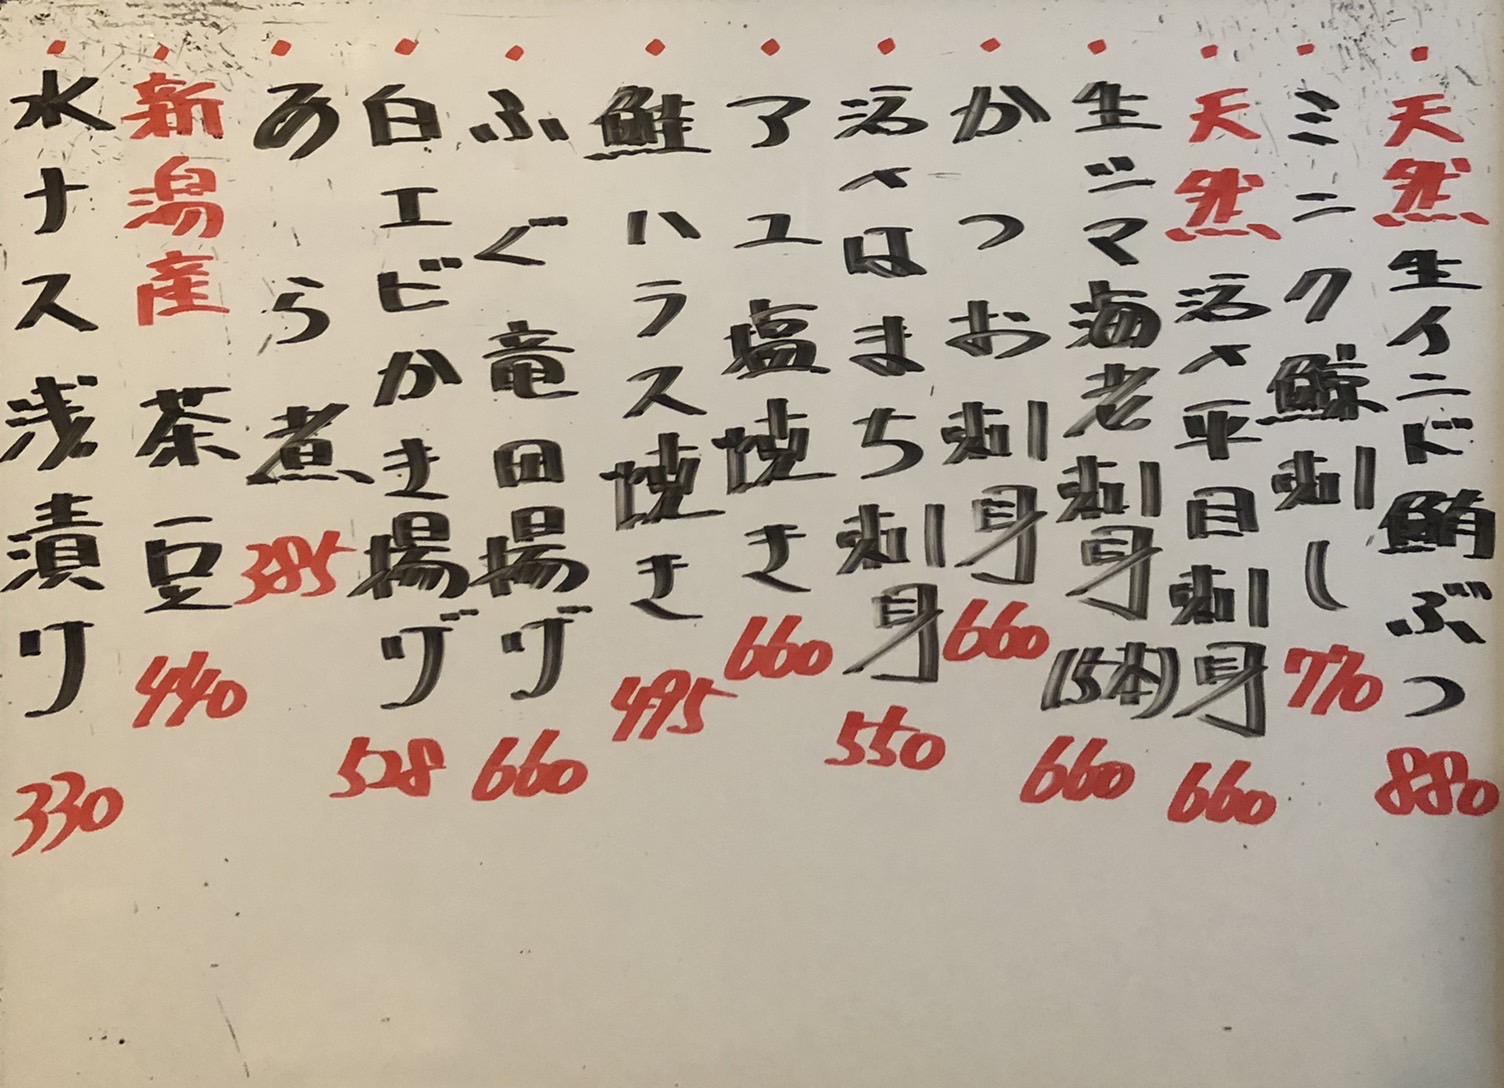 ・天然生インド鮪ぶつ 880
・ミニク鯨刺し 770
・天然活〆平目刺身 660
・生ジマ海老刺身(5本) 660
・かつお刺身 660
・活〆はまち刺身 550
・アユ塩焼き 660
・鮭ハラス焼き 495
・ふぐ竜田揚げ 660
・白エビかき揚げ 528
・あら煮 385
・新潟産茶豆 440
・水ナス浅漬け 330